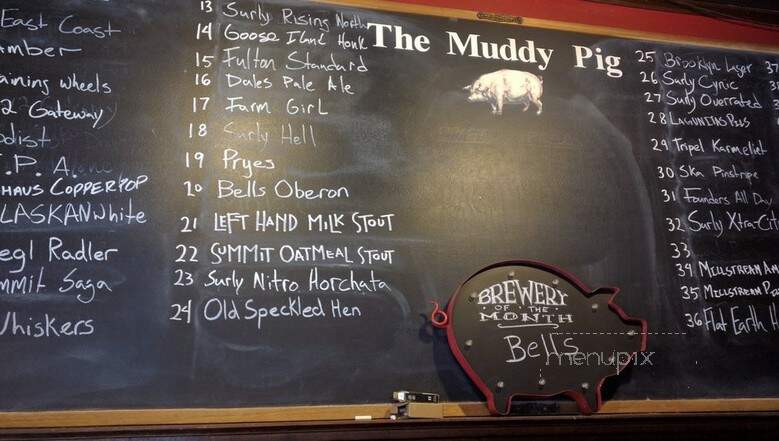 East Coast
amber
aining wheels
2 Gateway
odist
.P.A.
HAUS COPPER POP
LASKAN White
egl Radler
mmit Saga
Whiskers
13 Surly Rising North
14 Goose Island Honk
15 Fulton Standard
16 Dales Pale Ale
17 Farm Girl
18 Surly Hell
19 Pryes
20 Bells Oberon
21 LEFT HAND MILK STOUT
22 SUMMIT OATMEAL STOUT
23 Surly Nitro Horchata
24 Old Speckled Hen
The Muddy Pig
BREWERY
OF THE
MONTH
Bells
menupix
25 Brooklyn Lager
26 Surly Cynic
27 Surly Overrated
28 LAGUNITAS Pils
29 Tripel Karmeliet
30 Ska Pinstripe
31 Founders All Day
32 Surly Xtra-Cit
33
34 MILLSTREAM Am
35 MILLSTREAM
36 Flat Earth
37